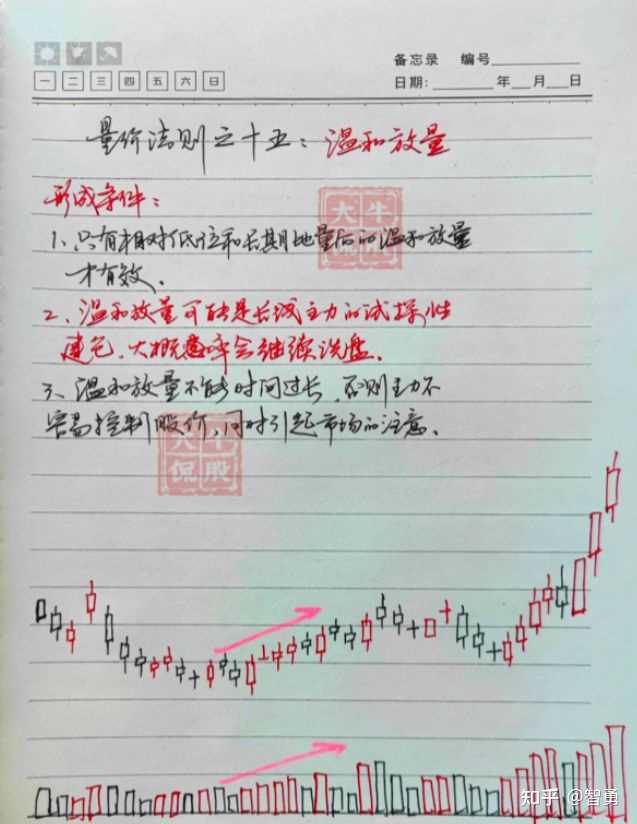 备忘录 编号
一 二 三 四 五 六 日
日期: 年 月 日
量价法则之十五:温和放量
形成条件:
1、只有相对低位和长期地量后的温和放量
才有效.
2、温和放量可能是长线主力的试探性
建仓.大概率会继续洗盘.
3、温和放量不能时间过长.否则主力不
容易控制股价,同时引起市场的注意.
大牛
侃股
大牛
侃股
知乎 @智勇